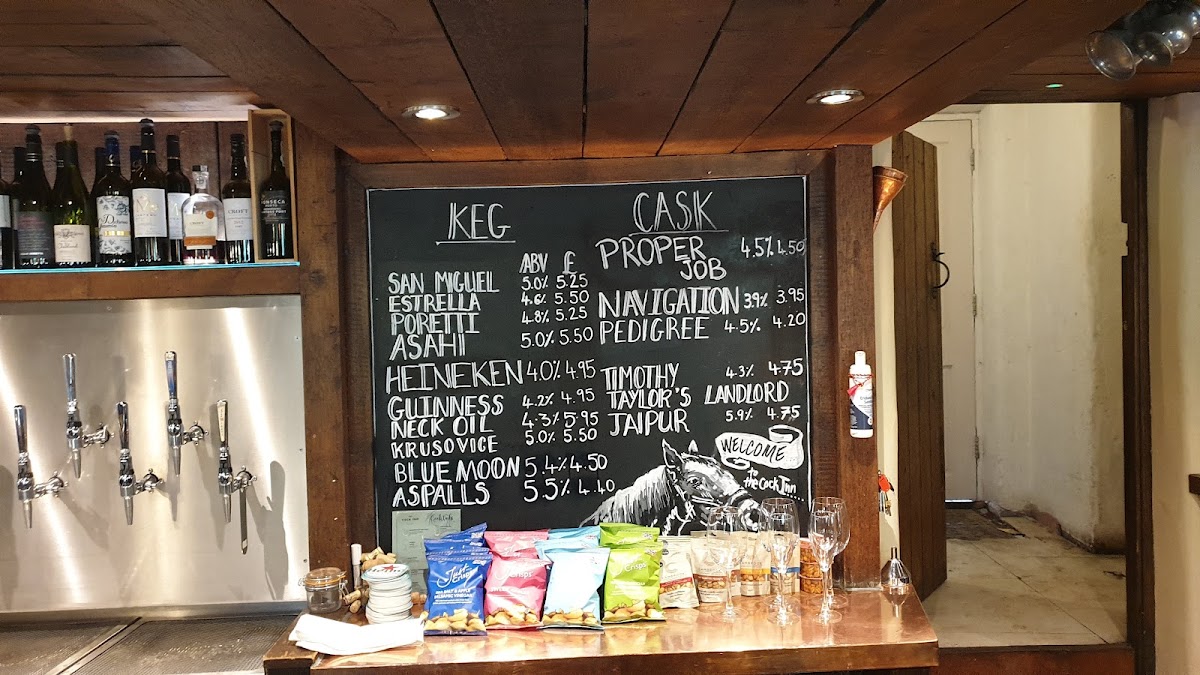 KEG
ABV £
SAN MIGUEL 5.0% 5.25
ESTRELLA 4.6% 5.50
PORETTI 4.8% 5.25
ASAHI 5.0% 5.50
HEINEKEN 4.0% 4.95
GUINNESS 4.2% 4.95
NECK OIL 4.3% 5.95
KRUSOVICE 5.0% 5.50
BLUE MOON 5.4% 4.50
ASPALLS 5.5% 4.40
CASK
PROPER JOB 4.5% 4.50
NAVIGATION 3.9% 3.95
PEDIGREE 4.5% 4.20
TIMOTHY 4.3% 4.75
TAYLOR'S LANDLORD
JAIPUR 5.9% 4.75
WELCOME
to
the Cock Inn
FONSECA
CROFT
Just
Crisps
Crisps